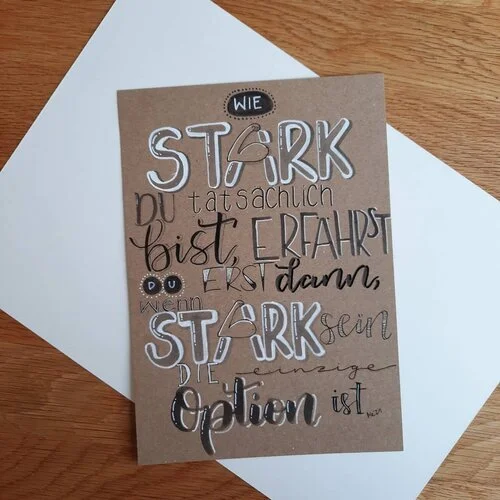 WIE
STARK
DU tatsächlich
bist, ERFÄHRST
DU ERST dann,
wenn
STARK sein
DIE einzige
Option ist